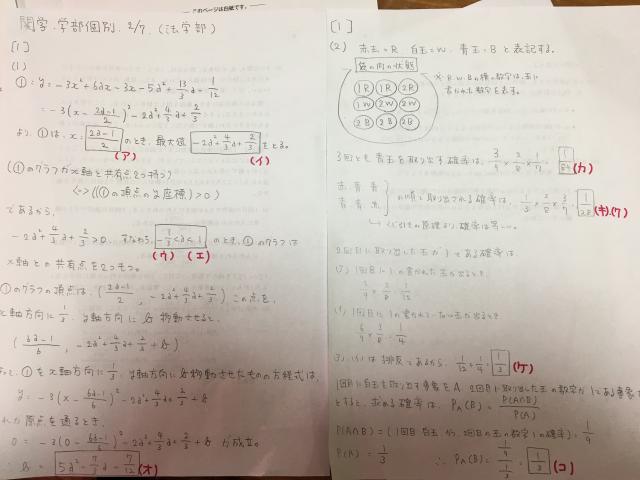 このページは白紙です。
関学.学部個別. 2/7. (法学部)
[1]
(1)
①: y = -3x²+6ax-3x-5a²+13/3 a-1/12
= -3(x - (2a-1)/2)² -2a²+4/3 a+2/3
より、①は、x = (2a-1)/2 のとき、最大値 -2a²+4/3 a+2/3 をとる。
(ア) (イ)
(①のグラフがx軸と共有点を2つ持つ)
⇔ ((①の頂点のy座標) > 0)
であるから、
-2a²+4/3 a+2/3 > 0. すなわち、 -1/3 < a < 1 のとき、①のグラフは
(ウ) (エ)
x軸との共有点を2つもつ。
①のグラフの頂点は、((2a-1)/2, -2a²+4/3 a+2/3) この点を、
x軸方向に 1/3, y軸方向に b 移動させると、
((6a-1)/6, -2a²+4/3 a+2/3+b)
①をx軸方向に 1/3, y軸方向に b 移動させたものの方程式は、
y = -3(x - (6a-1)/6)² -2a²+4/3 a+2/3+b
原点を通るとき、
0 = -3(0 - (6a-1)/6)² -2a²+4/3 a+2/3+b が成立。
b = 5a² - 7/3 a - 7/12 (オ)
[1]
(2) 赤玉=R 白玉=W. 青玉=B と表記する。
袋の中の状態
1R 1R 2R
1W 2W 2W
2B 2B 2B
※ R.W.Bの横の数字は、玉に
書かれた数字を表す。
3回とも青玉を取り出す確率は、 3/9 × 2/8 × 1/7 = 1/84 (カ)
赤. 青. 青
青. 青. 赤
の順に取り出される確率は、 1/3 × 3/8 × 2/7 = 1/28 (キ).(ク)
くじ引きの原理より確率は等しい。
2回目に取り出した玉が1である確率は、
(ア) 1回目に1の書かれた玉が出るとき、
3/9 × 2/8 = 1/12
(イ) 1回目に1の書かれていない玉が出るとき
6/9 × 3/8 = 1/4
(ア),(イ)は排反であるから、 1/12 + 1/4 = 1/3 (ケ)
1回目に白玉を取り出す事象をA. 2回目に取り出した玉の数字が1である事象を
とすると、求める確率は、 P_A(B) = P(A∩B)/P(A)
P(A∩B) = (1回目 白玉 かつ 2回目の玉の数字1の確率) = 1/9
P(A) = 1/3 ∴ P_A(B) = (1/9)/(1/3) = 1/3 (コ)